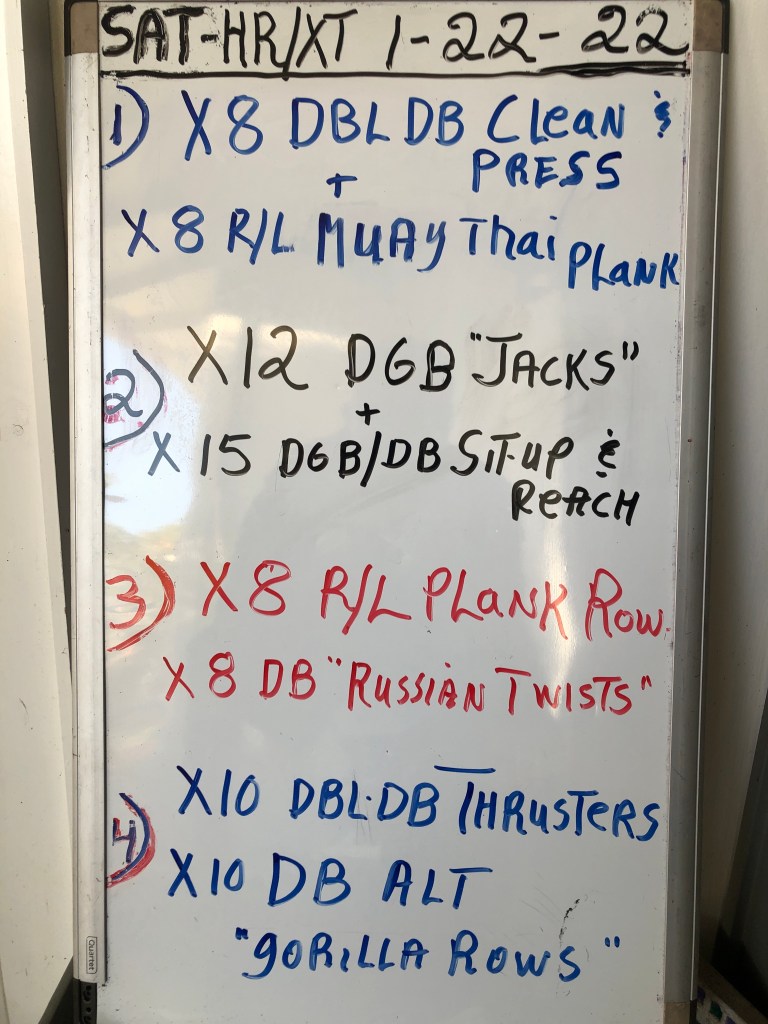 SAT-HR/XT 1-22-22
1) X8 DBL DB Clean &
PRESS
+
X8 R/L MUAY Thai PLANK
2) X12 DGB "JACKS"
+
X15 DGB/DB SIT-UP &
REACH
3) X8 R/L PLANK ROW.
X8 DB "RUSSIAN TWISTS"
4) X10 DBL-DB THRUSTERS
X10 DB ALT
"GORILLA ROWS"
Quartet